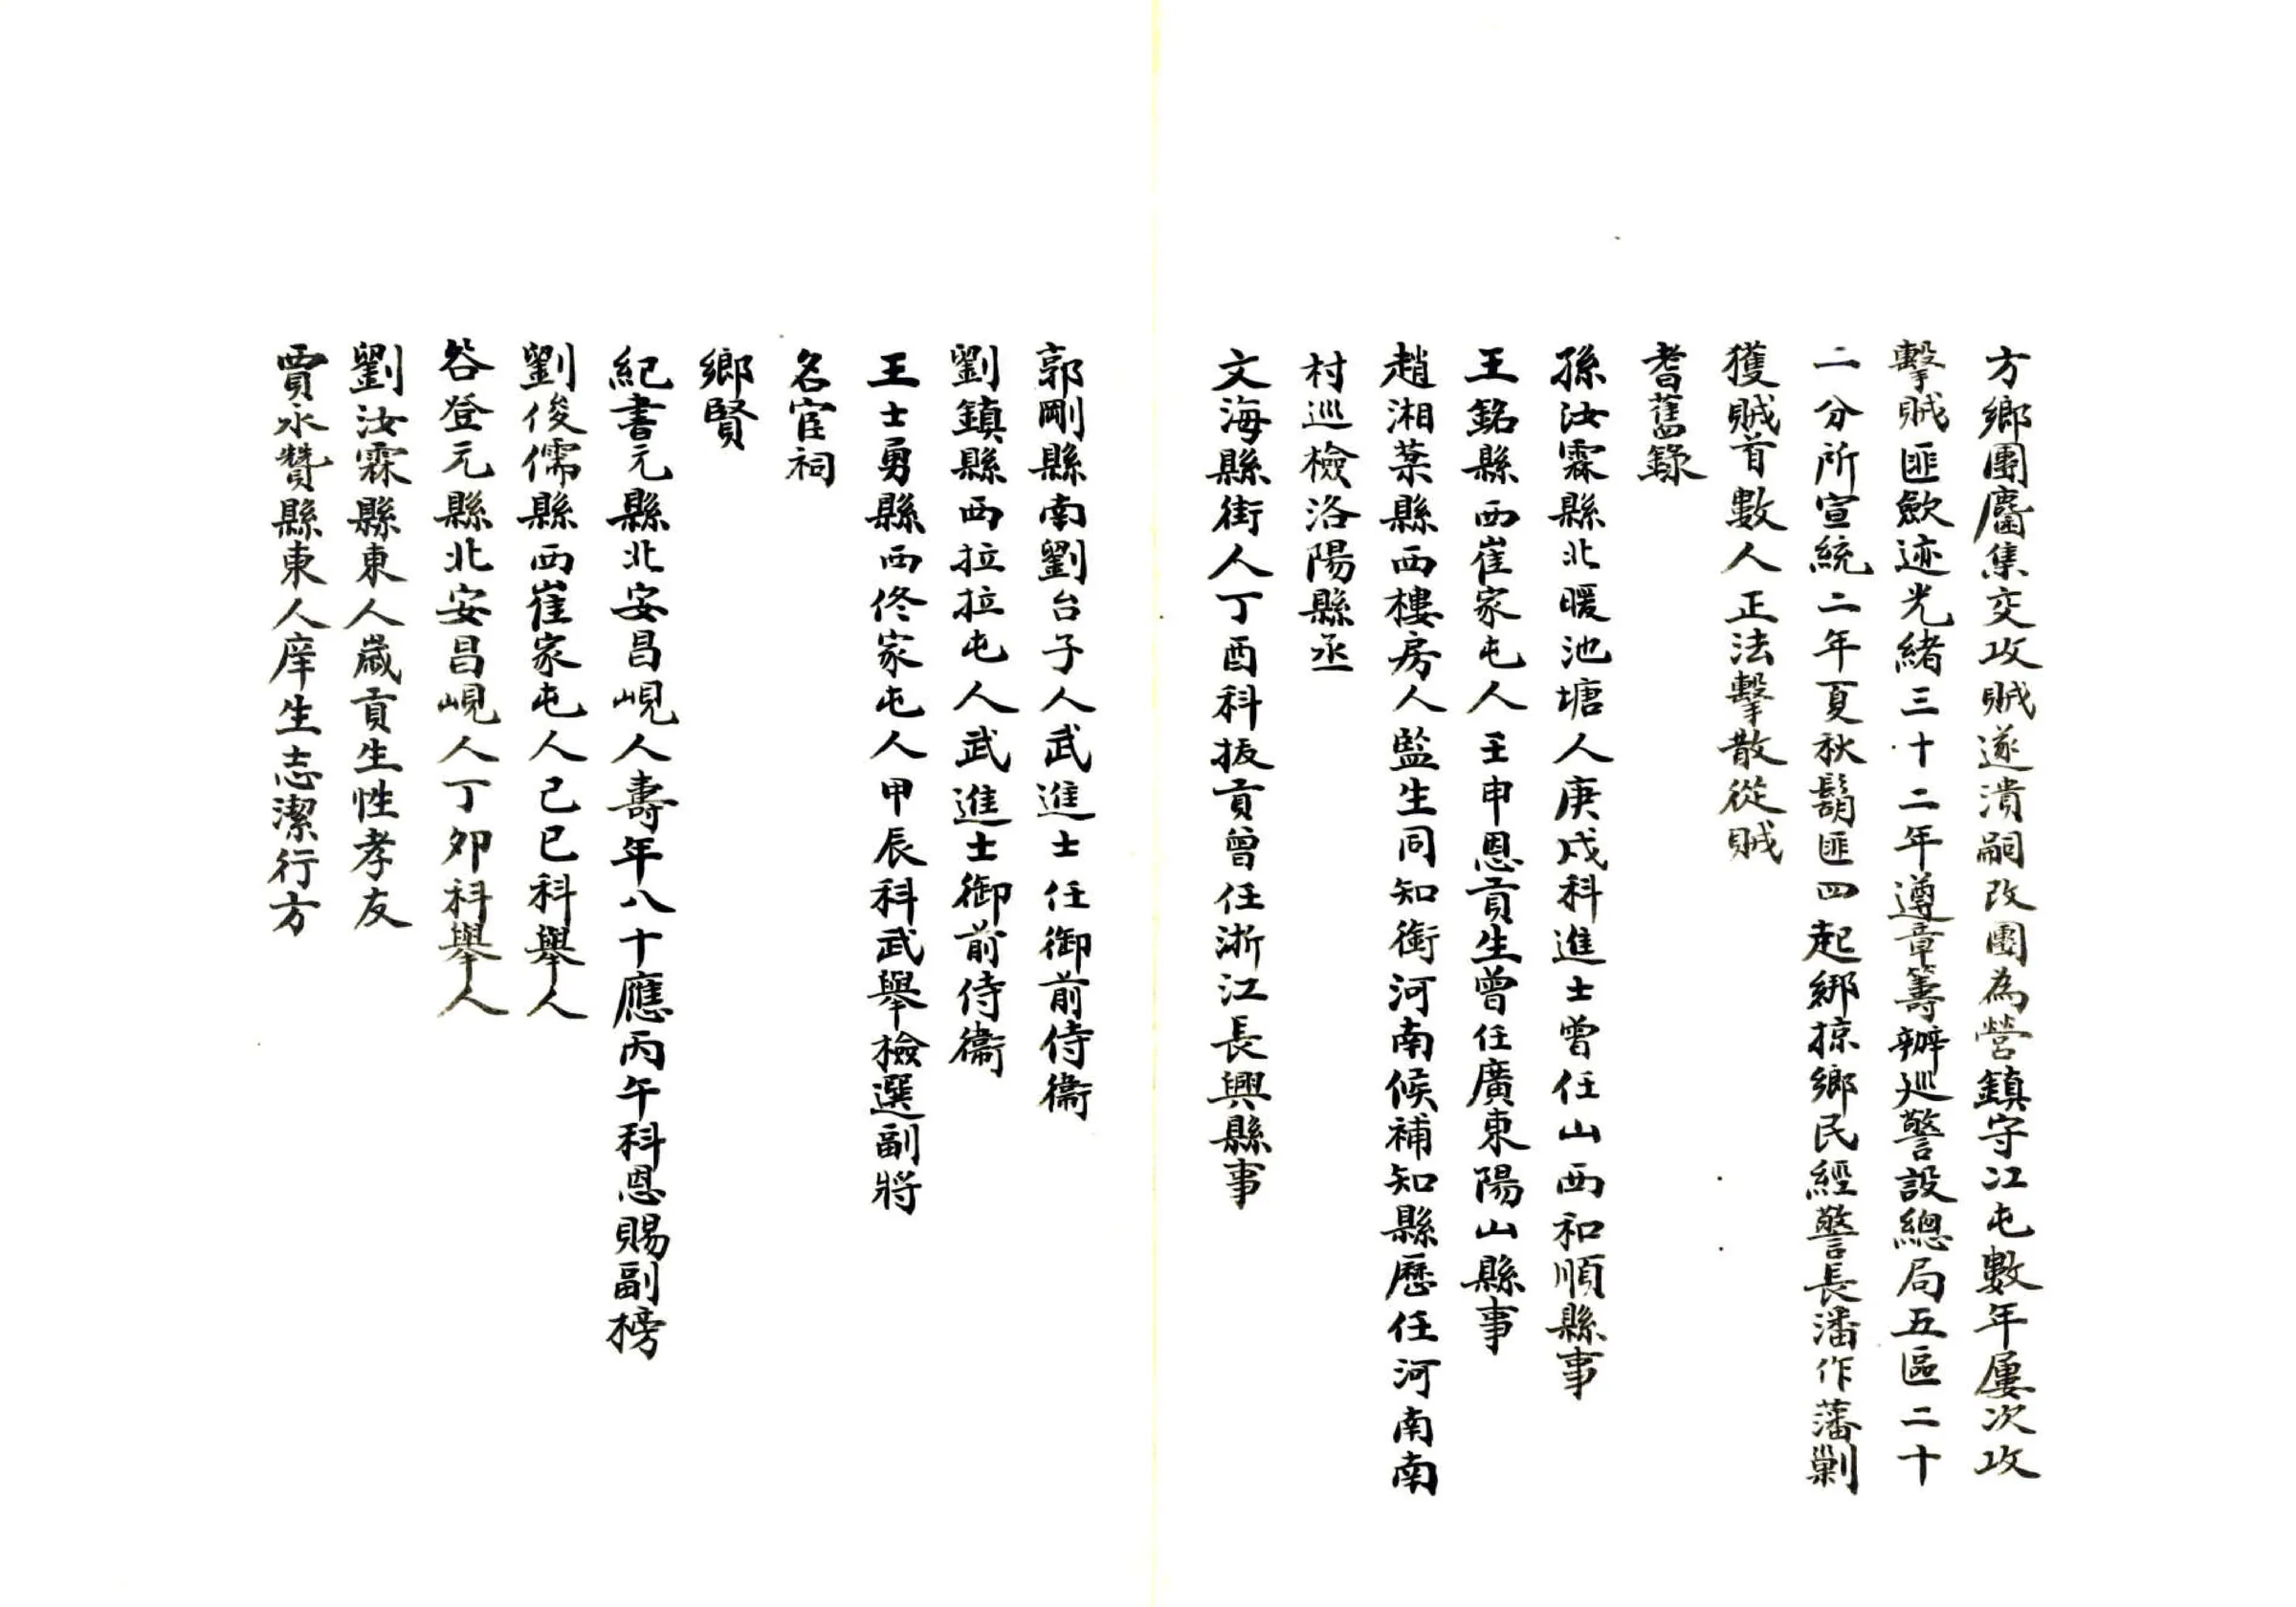 方鄉團麕集交攻賊遂潰嗣改團為營鎮守江屯數年屢次攻
擊賊匪歛迹光緒三十二年遵章籌辦巡警設總局五區二十
二分所宣統二年夏秋鬍匪四起綁掠鄉民經警長潘作藩剿
獲賊首數人正法擊散從賊
耆舊錄
孫汝霖縣北暖池塘人庚戌科進士曾任山西和順縣事
王銘縣西崔家屯人壬申恩貢生曾任廣東陽山縣事
趙湘葉縣西樓房人監生同知銜河南候補知縣歷任河南南
村巡檢洛陽縣丞
文海縣街人丁酉科拔貢曾任浙江長興縣事
郭剛縣南劉台子人武進士任御前侍衞
劉鎮縣西拉拉屯人武進士御前侍衞
王士勇縣西佟家屯人甲辰科武舉檢選副將
名宦祠
鄉賢
紀書元縣北安昌峴人壽年八十應丙午科恩賜副榜
劉俊儒縣西崔家屯人己巳科舉人
谷登元縣北安昌峴人丁卯科舉人
劉汝霖縣東人歲貢生性孝友
賈永贊縣東人庠生志潔行方